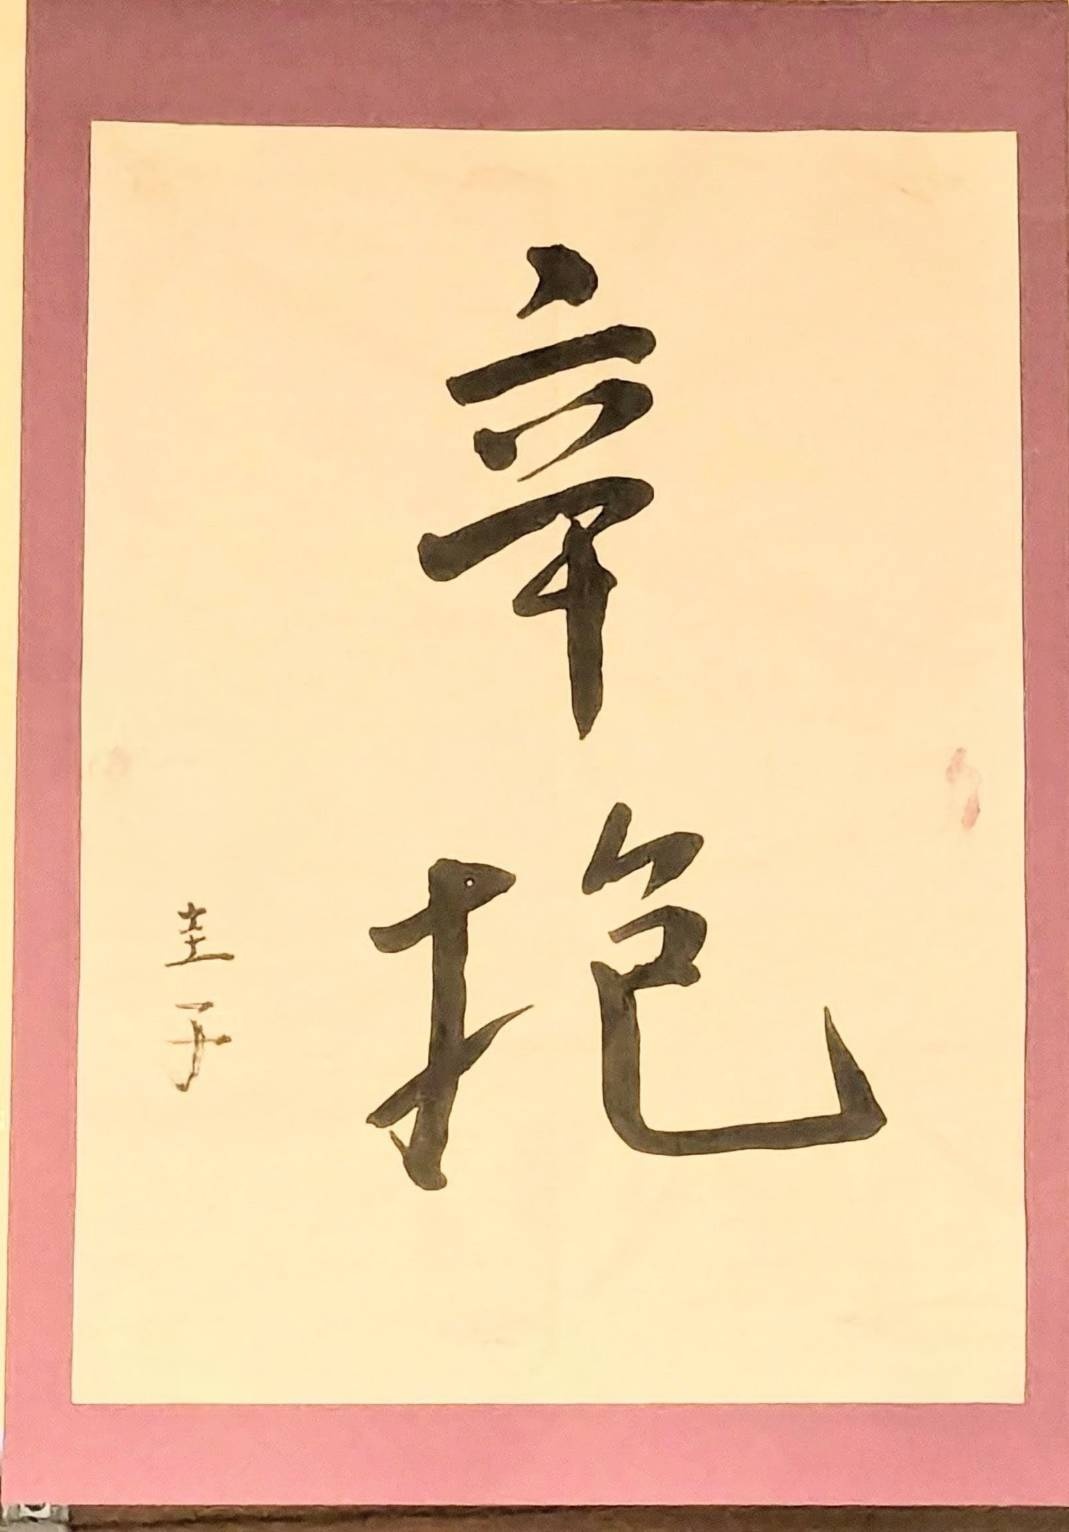 辛抱
圭子